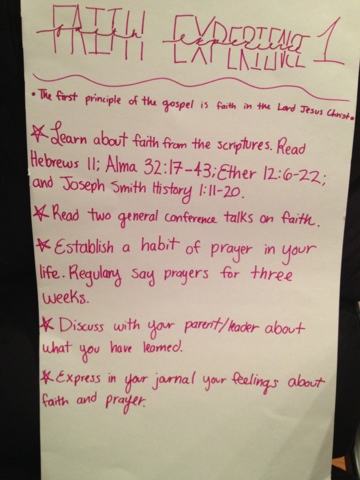 FAITH EXPERIENCE 1
faith experience
• The first principle of the gospel is faith in the Lord Jesus Christ •
Learn about faith from the scriptures. Read
Hebrews 11; Alma 32:17-43; Ether 12:6-22;
and Joseph Smith History 1:11-20.
Read two general conference talks on faith.
Establish a habit of prayer in your
life. Regulary say prayers for three
weeks.
Discuss with your parent/leader about
what you have learned.
Express in your journal your feelings about
faith and prayer.